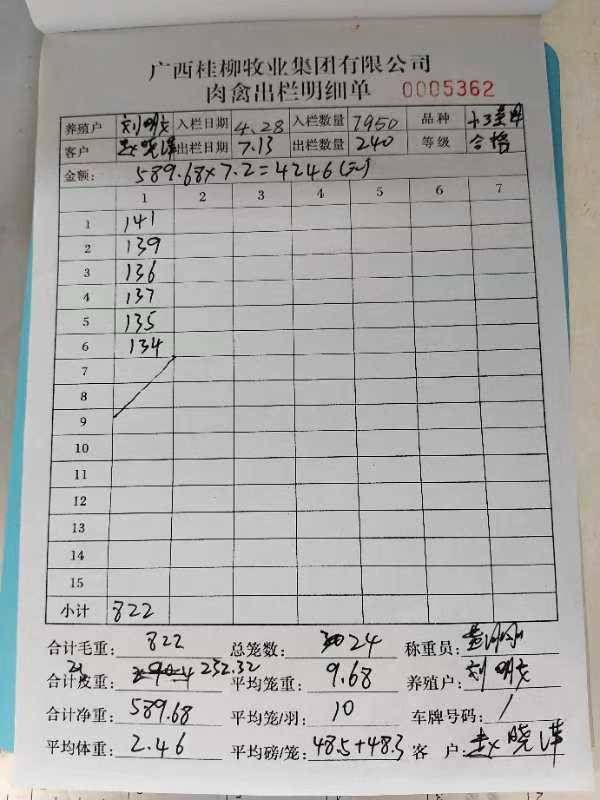 广西桂柳牧业集团有限公司
肉禽出栏明细单 0005362
养殖户 刘明 入栏日期 4.28 入栏数量 7950 品种
客户 赵晓萍 出栏日期 7.13 出栏数量 240 等级 合格
金额: 589.68×7.2=4246(元)
1 2 3 4 5 6 7
1 141
2 139
3 136
4 137
5 135
6 134
7
8
9
10
11
12
13
14
15
小计 822
合计毛重: 822 总笼数: 24 称重员:
合计皮重: 232.32 平均笼重: 9.68 养殖户: 刘明
合计净重: 589.68 平均笼/羽: 10 车牌号码: /
平均体重: 2.46 平均磅/笼: 48.5+48.3 客户: 赵晓萍